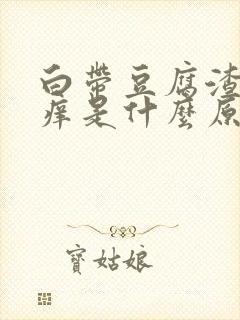 白带豆腐渣
痒是什麼原
寶姑娘